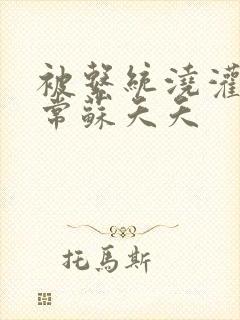 被繫統澆灌
常蘇天天
托馬斯